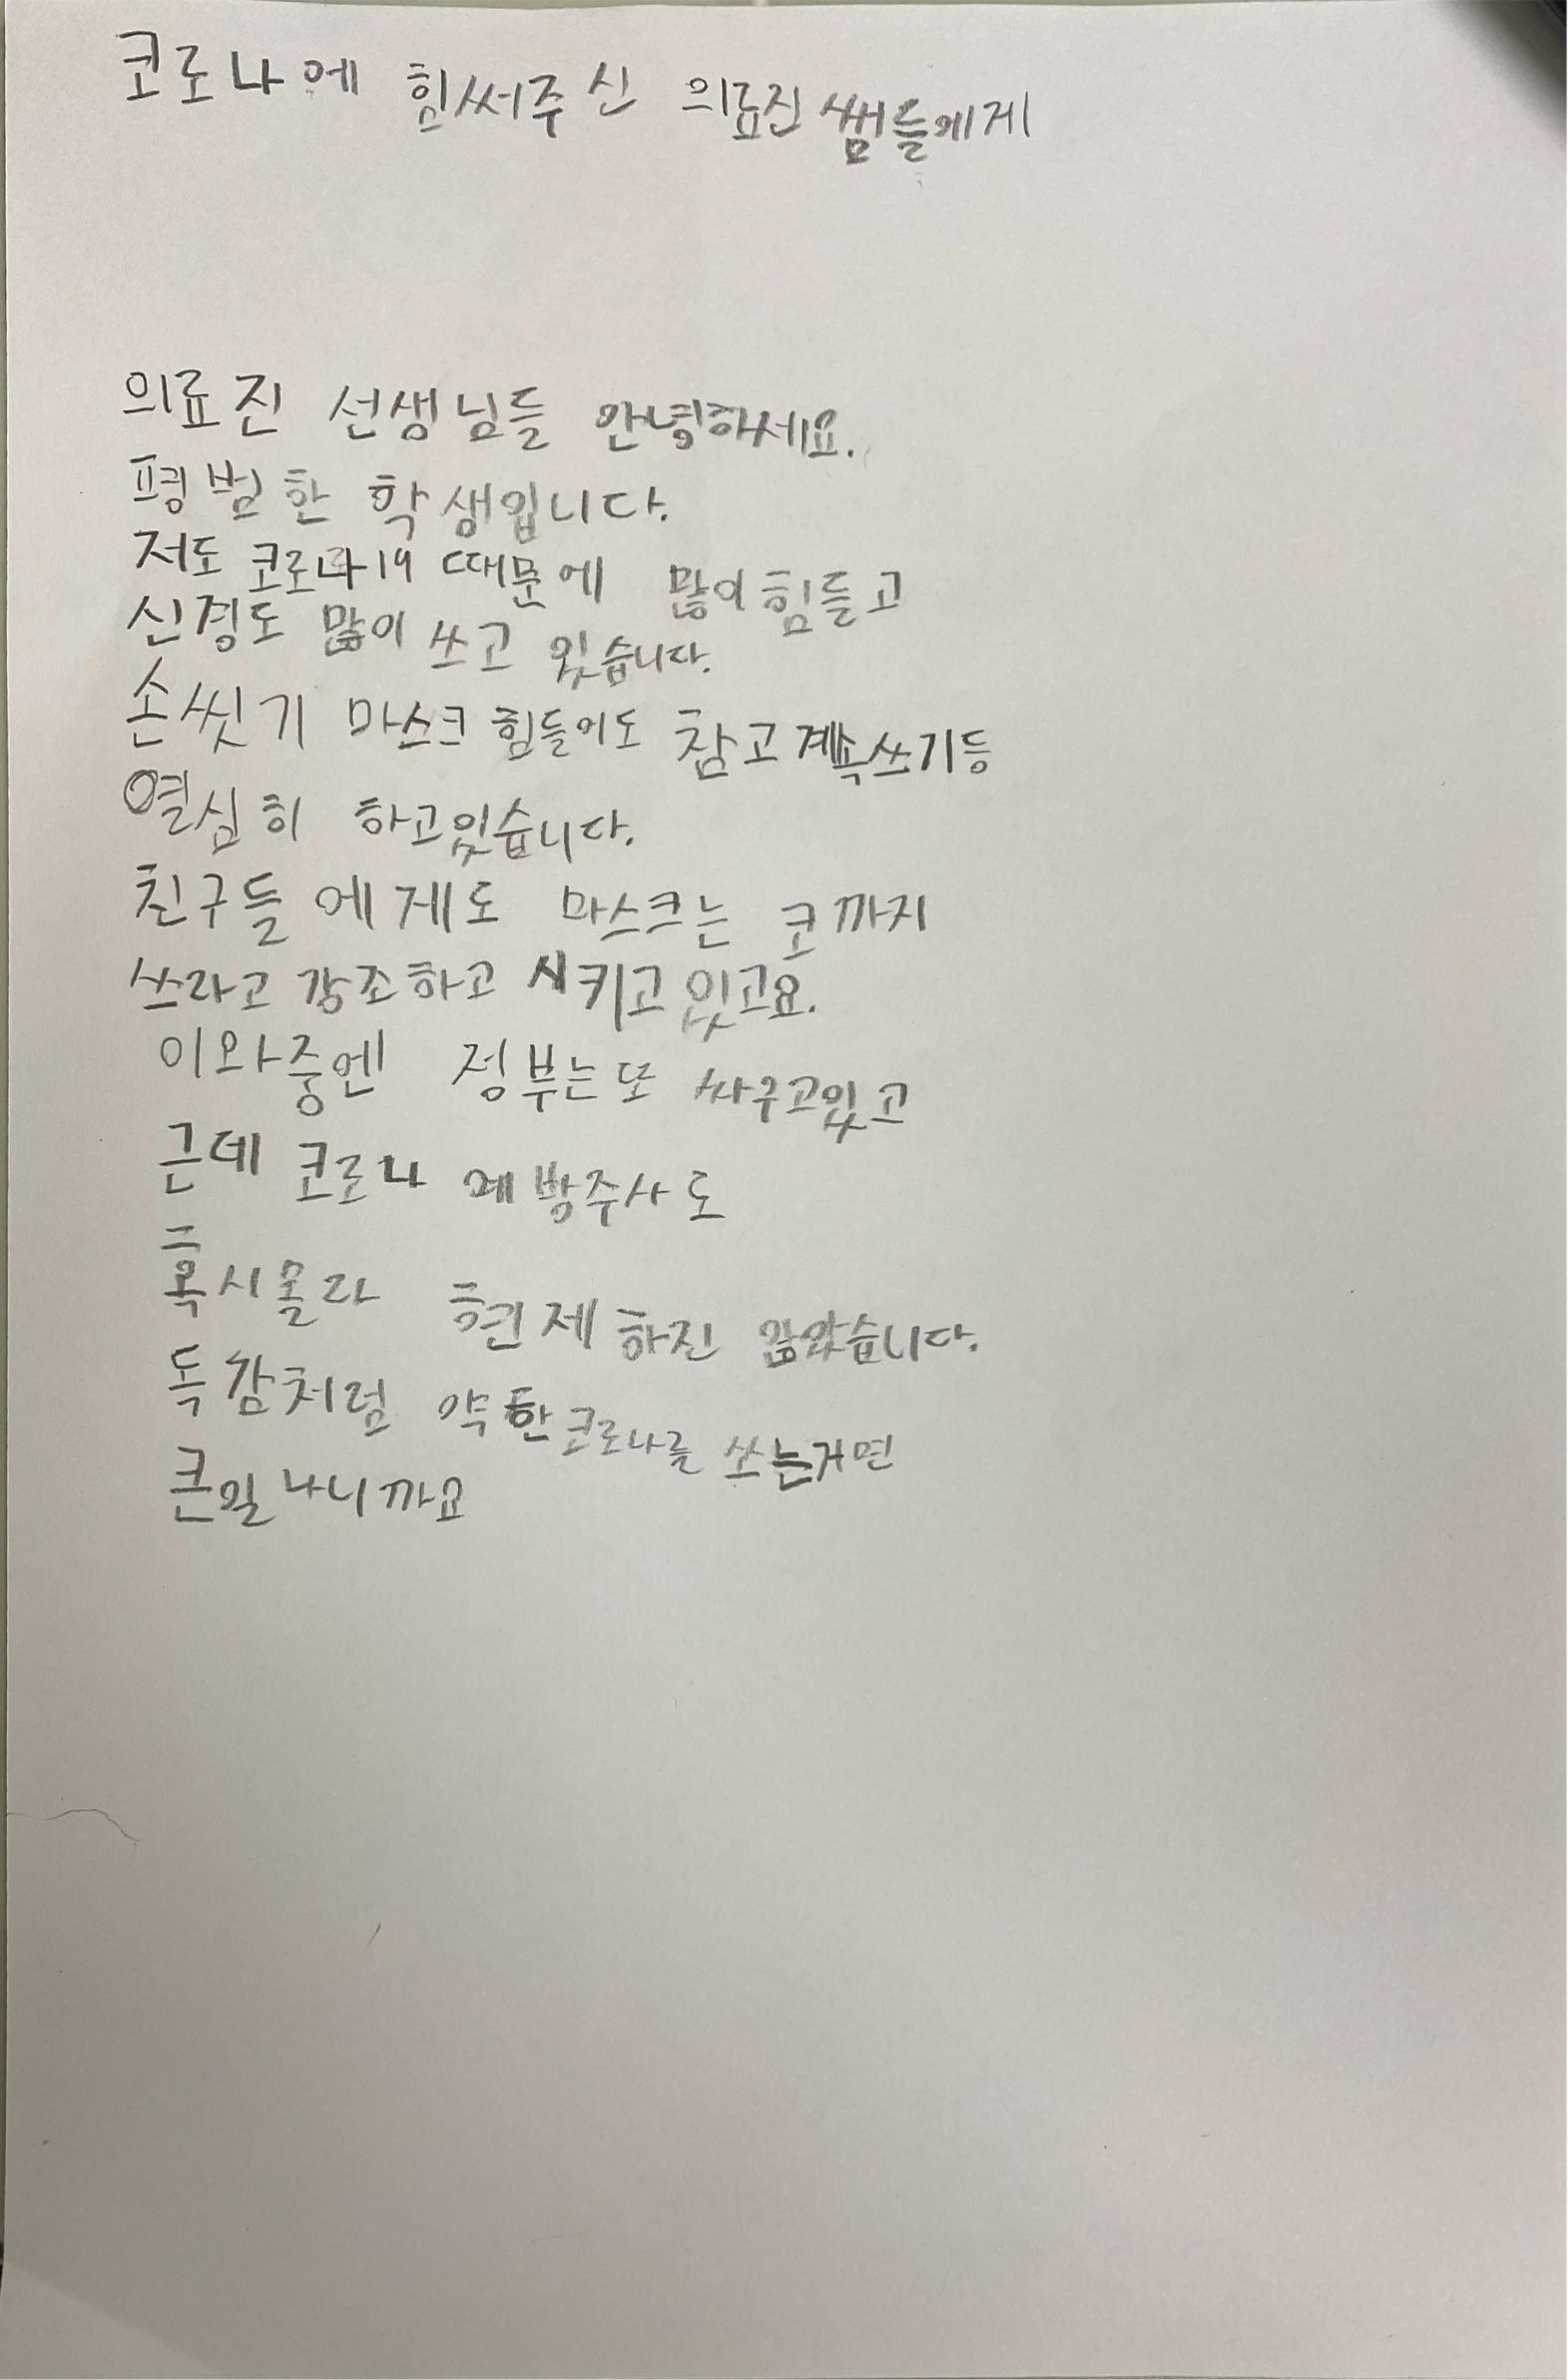 코로나에 힘써주신 의료진 쌤들에게
의료진 선생님들 안녕하세요.
평범한 학생입니다.
저도 코로나19 때문에 많이 힘들고
신경도 많이 쓰고 있습니다.
손씻기 마스크 힘들어도 참고 계속쓰기등
열심히 하고있습니다.
친구들에게도 마스크는 코까지
쓰라고 강조하고 시키고 있고요.
이와중엔 정부는 또 싸우고있고
근데 코로나 예방주사도
혹시몰라 현제 하진 않았습니다.
독감처럼 약한 코로나를 쏘는거면
큰일나니까요